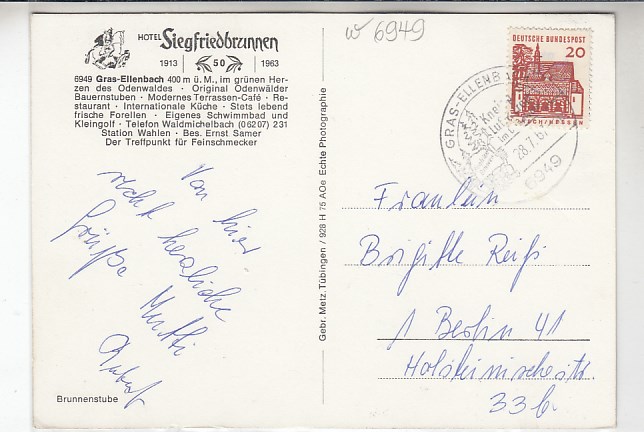 w 6949
HOTEL Siegfriedbrunnen
1913 50 1963
6949 Gras-Ellenbach 400 m ü. M., im grünen Her-
zen des Odenwaldes · Original Odenwälder
Bauernstuben · Modernes Terrassen-Café · Re-
staurant · Internationale Küche · Stets lebend
frische Forellen · Eigenes Schwimmbad und
Kleingolf · Telefon Waldmichelbach (06207) 231
Station Wahlen · Bes. Ernst Samer
Der Treffpunkt für Feinschmecker
Von hier
recht herzliche
Grüße
Mutti
Brunnenstube
Gebr. Metz, Tübingen / 928 H 75 AOe Echte Photographie
DEUTSCHE BUNDESPOST
20
LORSCH/HESSEN
GRAS-ELLENB
28.7.67
6949
Fräulein
Brigitte Reiß
1 Berlin 41
Holsteinischestr.
33 b.